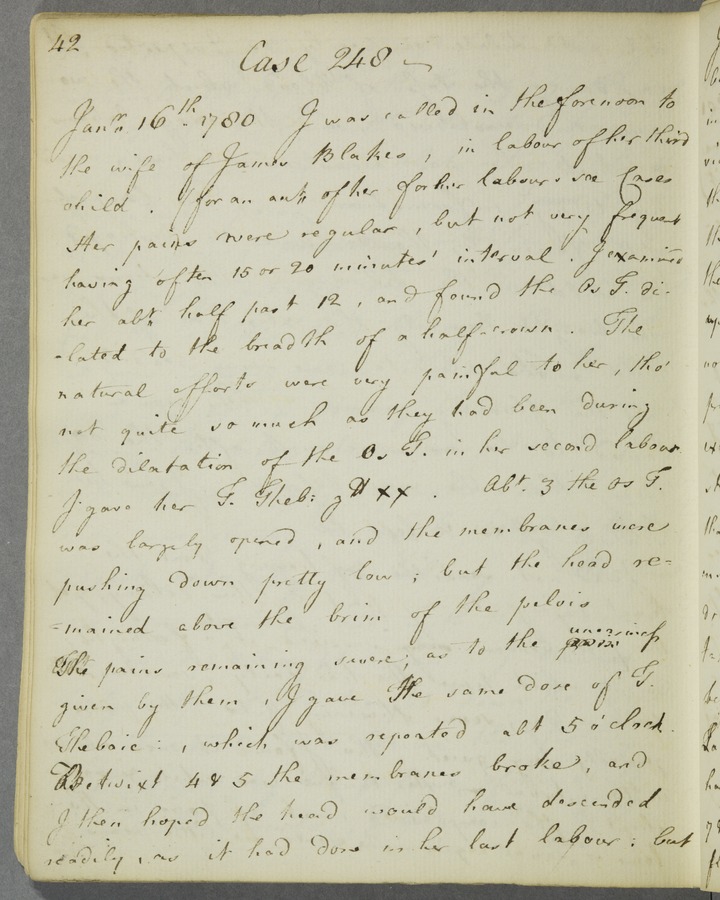 42
Case 248
Jany. 16th. 1780 I was called in the forenoon to
the wife of James Blakes, in labour of her third
child. (for an acct of her former labours see Cases
Her pains were regular, but not very frequent
having often 15 or 20 minutes' interval. I examined
her abt. half past 12, and found the Os T. di-
-lated to the breadth of a half-crown. The
natural efforts were very painful to her, tho'
not quite so much as they had been during
the dilatation of the Os T. in her second labour
I gave her T. Theb: gtt xx. Abt. 3 the Os T.
was largely opened, and the membranes were
pushing down pretty low; but the head re-
=mained above the brim of the pelvis
The pains remaining severe; as to the uneasiness
given by them, I gave the same dose of T.
Thebaic:, which was repeated abt 5 o'clock.
Betwixt 4 & 5 the membranes broke, and
I then hoped the head would have descended
readily, as it had done in her last labour: but